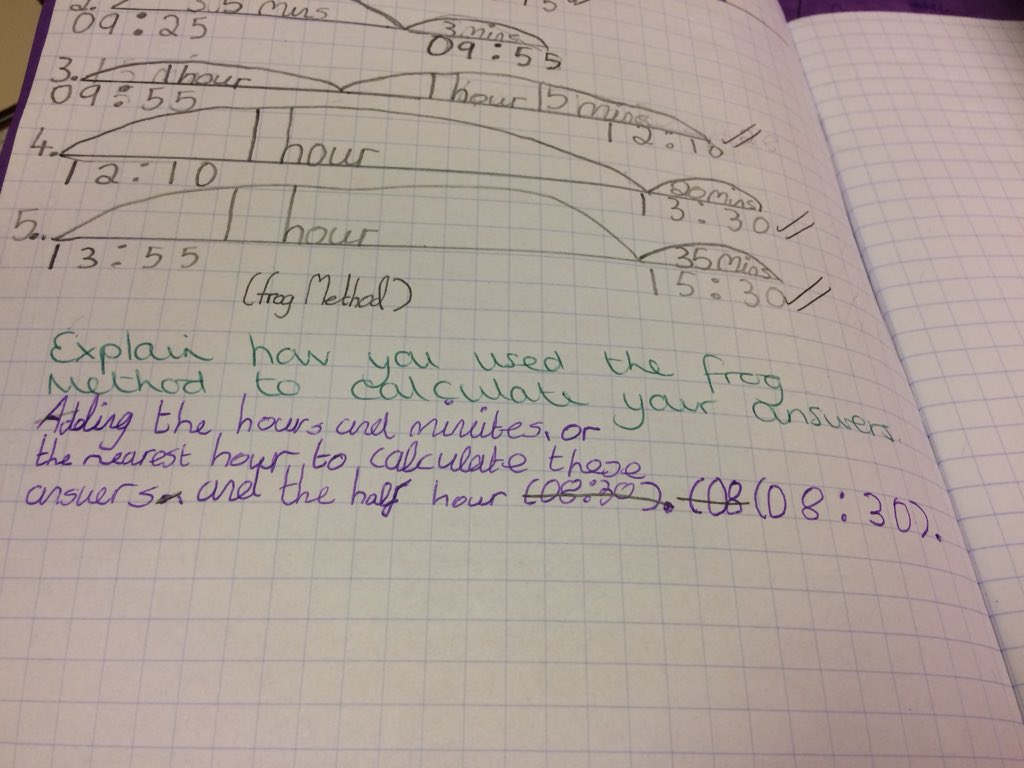 2. 5 mins
3 mins
09:25 09:55
3. 1 hour 1 hour 15 mins
09:55 12:10
4. 1 hour 20 mins
12:10 13:30
5. 1 hour 35 mins
13:55 15:30
(frog Method)
Explain how you used the frog
Method to calculate your answers.
Adding the hours and minuites, or
the nearest hour, to calculate these
answers and the half hour (08:30). (08 (08:30).